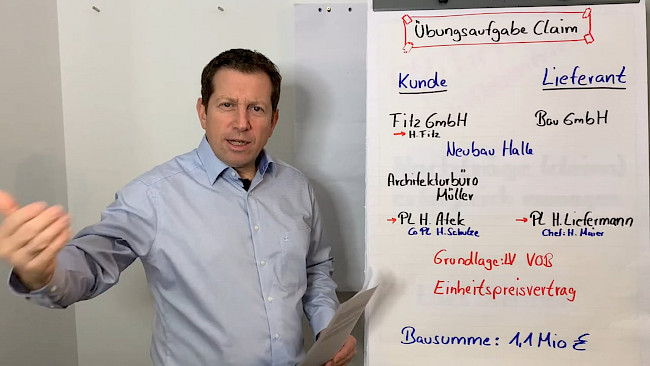 Übungsaufgabe Claim
Kunde
Lieferant
Fitz GmbH
Bau GmbH
→ H. Fitz
Neubau Halle
Architekturbüro
Müller
→ PL H. Atek
→ PL H. Liefermann
Co PL H. Schulze
Chef: H. Maier
Grundlage: LV VOB
Einheitspreisvertrag
Bausumme: 1,1 Mio €